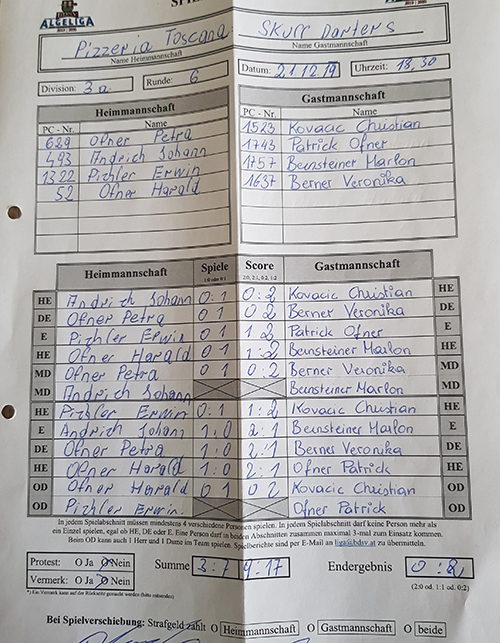 ALGELIGA
Pizzeria Toscana
Name Heimmannschaft
Skurr Darters
Name Gastmannschaft
Division: 3a
Runde: 6
Datum: 21.12.19
Uhrzeit: 18,30
Heimmannschaft
PC - Nr. Name
629 Ofner Petra
493 Andrich Johann
1322 Pichler Erwin
52 Ofner Harald
Gastmannschaft
PC - Nr. Name
1523 Kovacic Christian
1743 Patrick Ofner
1757 Beinsteiner Marlon
1637 Berner Veronika
Heimmannschaft Spiele Score Gastmannschaft
1:0 or 0:1 2:0, 2:1, 0:2, 1:2
HE Andrich Johann 0:1 0:2 Kovacic Christian HE
DE Ofner Petra 0 1 0 2 Berner Veronika DE
E Pichler Erwin 0 1 1 2 Patrick Ofner E
HE Ofner Harald 0 1 1:2 Beinsteiner Marlon HE
MD Ofner Petra 0 1 0:2 Berner Veronika MD
MD Andrich Johann Beinsteiner Marlon MD
HE Pichler Erwin 0:1 1:2 Kovacic Christian HE
E Andrich Johann 1:0 2:1 Beinsteiner Marlon E
DE Ofner Petra 1:0 2:1 Berner Veronika DE
HE Ofner Harald 1:0 2:1 Ofner Patrick HE
OD Ofner Harald 0 1 0 2 Kovacic Christian OD
OD Pichler Erwin. Ofner Patrick OD
In jedem Spielabschnitt müssen mindestens 4 verschiedene Personen spielen. In jedem Spielabschnitt darf keine Person mehr als
ein Einzel spielen, egal ob HE, DE oder E. Eine Person darf in beiden Abschnitten zusammen maximal 3-mal zum Einsatz kommen.
Beim OD kann auch 1 Herr und 1 Dame im Team spielen. Spielberichte sind per E-Mail an liga@bdav.at zu übermitteln.
Protest: O Ja O Nein
Vermerk: O Ja O Nein
Summe 3:7 9:17
Endergebnis 0:2
(2:0 od. 1:1 od. 0:2)
*) Ein Vermerk kann auf der Rückseite gemacht werden (bitte anmerken)
Bei Spielverschiebung: Strafgeld zahlt O Heimmannschaft O Gastmannschaft O beide